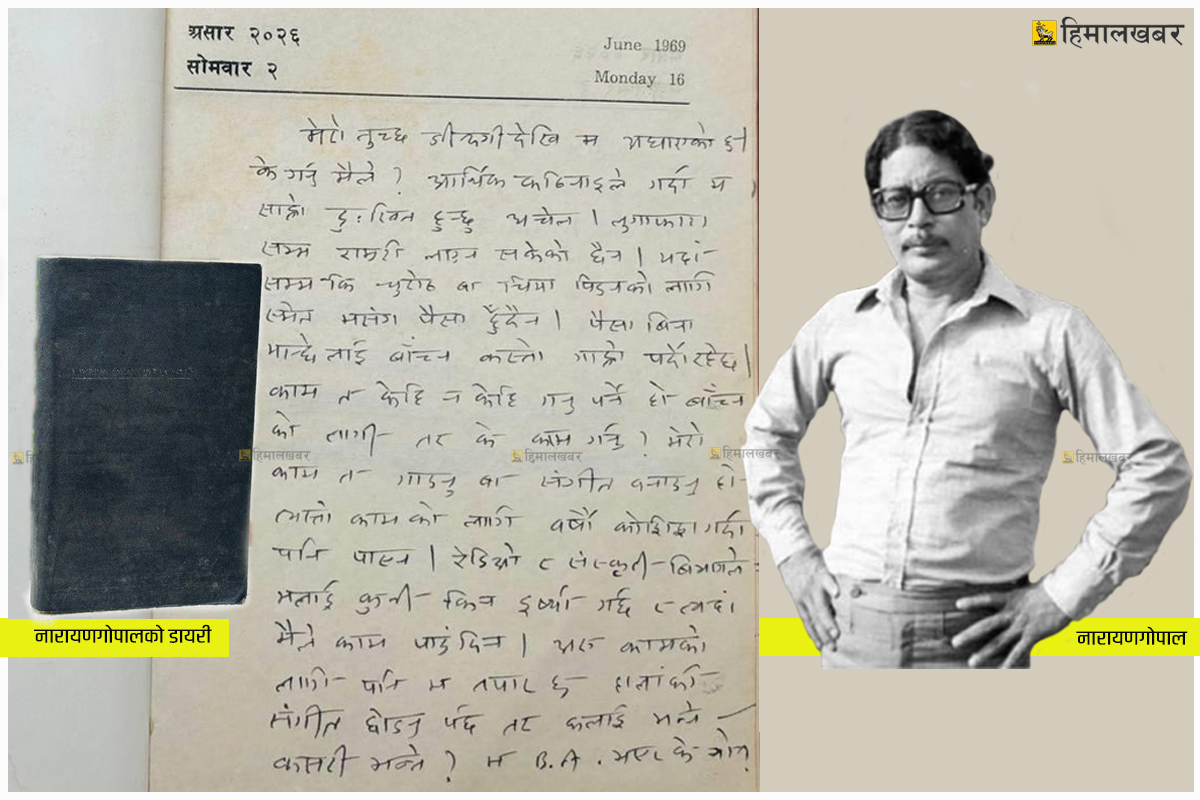 असार २०२६
सोमवार २
June 1969
Monday 16
हिमालखबर
मेरो तुच्छ जीन्दगी देखि म अघाएको छु।
के गर्नु मैले ? आर्थिक कठिनाइले गर्दा म
साह्रो दुःखित हुन्छु अचेल । लुगाफाटा
सम्म राम्ररी लाउन सकेको छैन । यहां-
सम्म कि चुरोट वा चिया पिउनको लागि
समेत मसंग पैसा हुँदैन । पैसा बिना
मान्छे लाई बाँच्न कस्तो गाह्रो पर्दो रहेछ ।
काम त केहि न केहि गर्नु पर्ने हो बाँच्न
को लागी तर के काम गर्नु ? मेरो
काम त गाउनु वा संगीत बनाउनु हो
त्यस्तो काम को लागि वर्षौं कोशिश गर्दा
पनि पाइन । रेडिओ र संस्कृती-बिभागले
मलाई कुन्नी किन इर्ष्या गर्छ र त्यहां
मैले काम पाउंदिन । अरु कामको
लागि पनि म तयार छु हालांकी
संगीत छोड्नु पर्छ तर कसलाई भन्ने
कसरी भन्ने ? म B.A. भएर के भो र ?
नारायणगोपालको डायरी
नारायणगोपाल
हिमालखबर
हिमालखबर
हिमालखबर
हिमालखबर